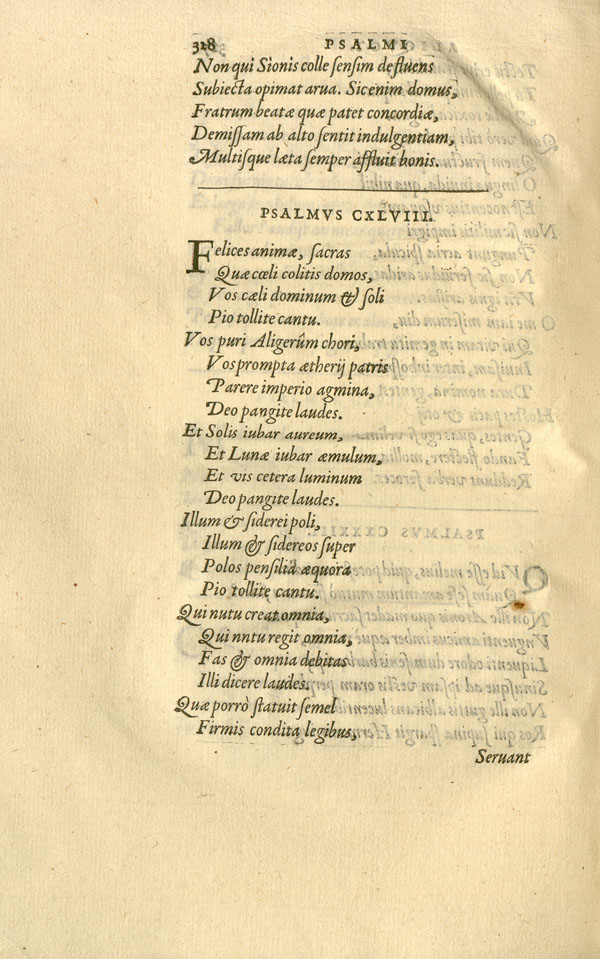 328 PSALMI
Non qui Sionis colle ſenſim defluens
Subiecta opimat arua. Sicenim domus,
Fratrum beatæ quæ patet concordiæ,
Demiſſam ab alto ſentit indulgentiam,
Multiſque læta ſemper affluit bonis.
PSALMVS CXLVIII.
Felices animæ, ſacras
Quæ cœli colitis domos,
Vos cæli dominum & ſoli
Pio tollite cantu.
Vos puri Aligerûm chori,
Vos prompta ætherij patris
Parere imperio agmina,
Deo pangite laudes.
Et Solis iubar aureum,
Et Lunæ iubar æmulum,
Et vis cetera luminum
Deo pangite laudes.
Illum & ſiderei poli,
Illum & ſidereos ſuper
Polos penſilia æquora
Pio tollite cantu.
Qui nutu creat omnia,
Qui nntu regit omnia,
Fas & omnia debitas
Illi dicere laudes.
Quæ porrò ſtatuit ſemel
Firmis condita legibus,
Seruant